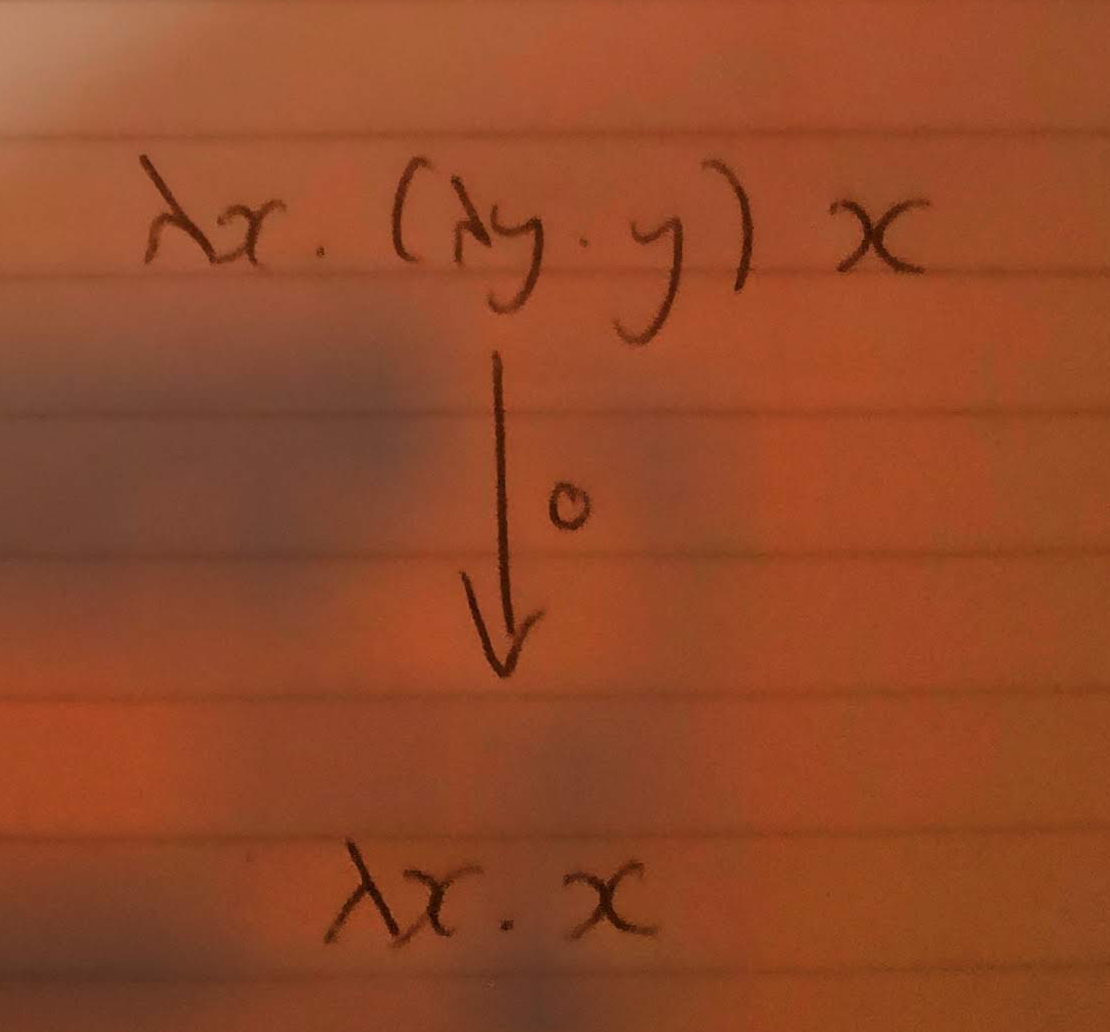 λx. (λy. y) x
↓ 0
λx. x